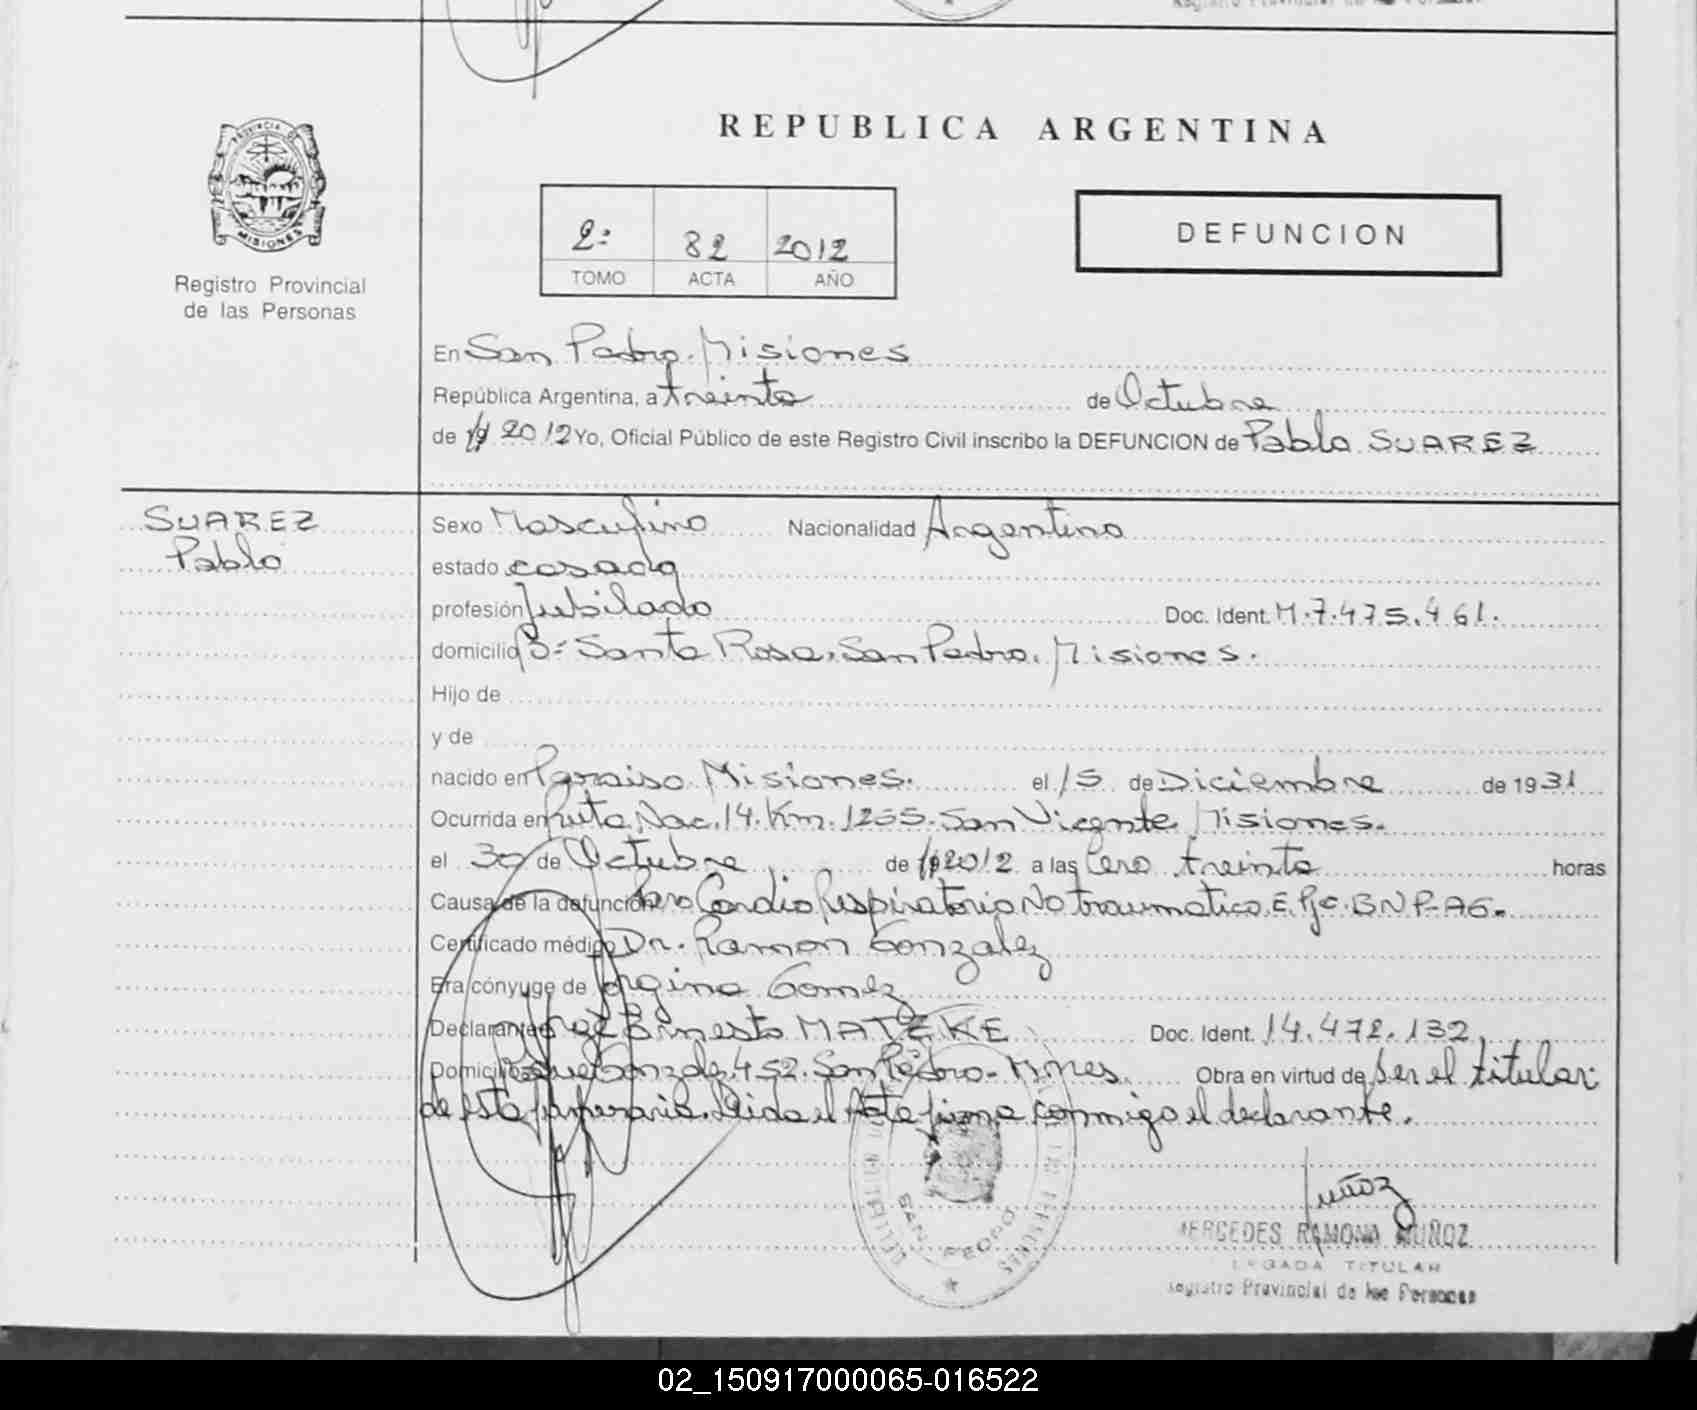 REPUBLICA ARGENTINA
PROVINCIA DE
MISIONES
Registro Provincial
de las Personas
2: 82 2012
TOMO ACTA AÑO
DEFUNCION
En San Pedro. Misiones
República Argentina, a treinta de Octubre
de 19 2012 Yo, Oficial Público de este Registro Civil inscribo la DEFUNCION de Pablo SUAREZ
SUAREZ
Pablo
Sexo Masculino Nacionalidad Argentino
estado casado
profesión Jubilado Doc. Ident. M.7.475.461.
domicilio Bº Santa Rosa. San Pedro. Misiones.
Hijo de
y de
nacido en Paraiso. Misiones. el 15 de Diciembre de 1931
Ocurrida en Ruta Nac. 14. Km. 1255. San Vicente Misiones.
el 30 de Octubre de 19 2012 a las Cero treinta horas
Causa de la defunción Paro Cardio Respiratorio No traumatico. BNP-AG.
Certificado médico Dr. Ramon Gonzalez
Era cónyuge de Gomez
Declarante Ernesto MATEKE Doc. Ident. 14.472.132.
Domicilio 452. San Pedro- Mnes. Obra en virtud de ser el titular
de esta funeraria. Leida el Acta firma conmigo el declarante.
SAN PEDRO
Muñoz
MERCEDES RAMONA MUÑOZ
TITULAR
Registro Provincial de las Personas
02_150917000065-016522